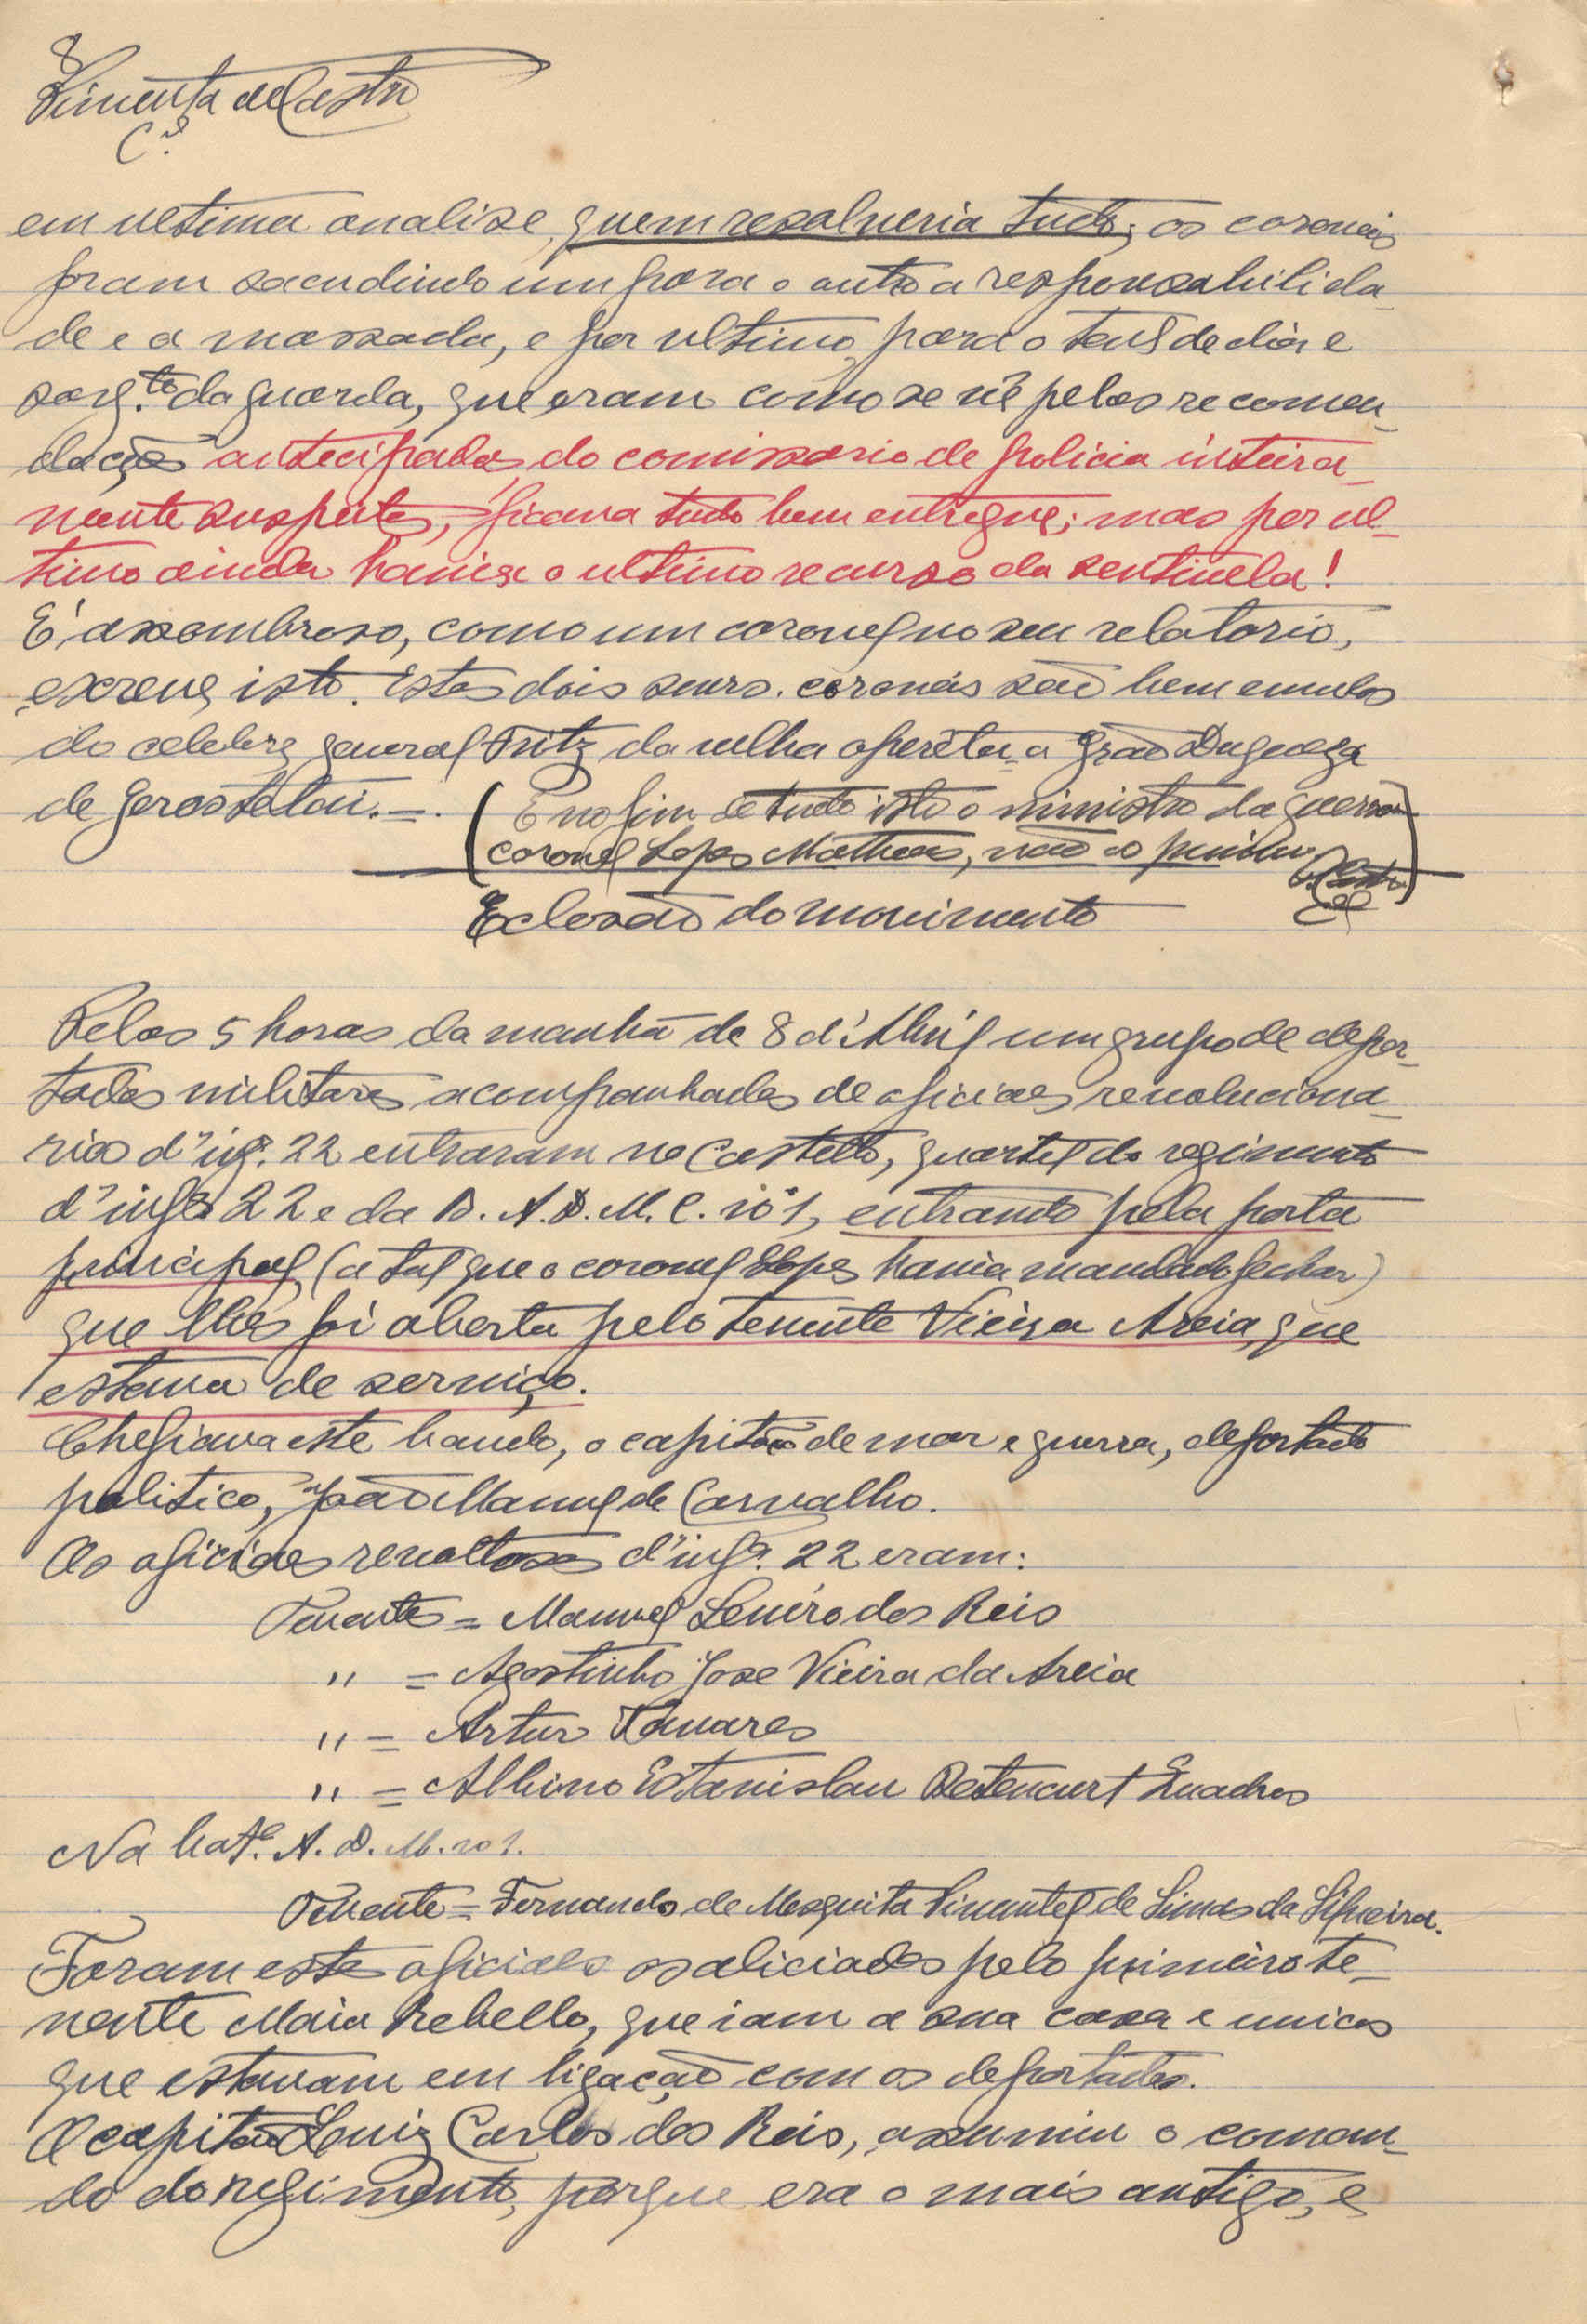 8
Pimenta de Castro
C.el
em ultima analise, quem resolveria tudo; os coroneis
foram sacudindo um para o outro a responsabilida-
de e a massada, e por ultimo para o tent. de dia e
sarg.to da guarda, que eram como se vê pelas recomen-
dações antecipadas do comissario de policia inteira-
mente suspeitos, ficava tudo bem entregue; mas por ul-
timo ainda havia o ultimo recurso da sentinela!
É assombroso, como um coronel no seu relatorio,
escreve isto. Estes dois snrs. coroneis são bem emulos
do celebre general Fritz da velha opereta a Grão Duqueza
de Gerostetai.=.
(E no fim de tudo isto o ministro da guerra
coronel Lopes Matheus, não os puniu.
P. Castro
C.el)
Eclosão do movimento
Pelas 5 horas da manhã de 8 d'Abril um grupo de depor-
tados militares acompanhados de oficiaes revoluciona-
rios d'inf.ª 22 entraram no Castello, quartel do regimento
d'infª 22 e da B. A. D. M. C. nº 1, entrando pela porta
principal, (a tal que o coronel Lopes havia mandado fechar)
que lhes foi aberta pelo tenente Vieira Areia, que
estava de serviço.
Chefiava este bando, o capitão de mar e guerra, deportado
politico, João Manuel de Carvalho.
Os oficiaes revoltosos d'infª. 22 eram:
Tenente = Manuel Lenéro dos Reis
" = Agostinho Jose Vieira da Areia
" = Artur Tavares
" = Albino Estanislau Betencurt Quadros
Na bat.ª A. D. M. nº 1.
Tenente = Fernando de Mesquita Pimentel de Simas da Silveira.
Foram estes oficiaes os aliciados pelo primeiro te-
nente Maia Rebello, que iam a sua casa e unicos
que estavam em ligação com os deportados.
O capitão Luiz Carlos dos Reis, assumiu o coman-
do do regimento, porque era o mais antigo, e